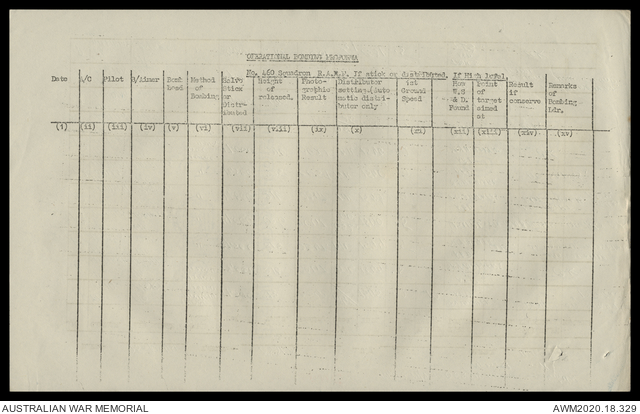 OPERATIONAL BOMBING PROFORMA
No. 460 Squadron R.A.A.F. If stick or distributed. If High level.
Date A/C Pilot B/Aimer Bomb Load Method of Bombing Salvo Stick or Distributed Height of released. Photographic Result Distributor setting.(Automatic distributor only Ground Speed How W.S & D. Found Point of target aimed at Result if conserve Remarks of Bombing Ldr.
(i) (ii) (iii) (iv) (v) (vi) (vii) (viii) (ix) (x) (xi) (xii) (xiii) (xiv) (xv)
AUSTRALIAN WAR MEMORIAL
AWM2020.18.329